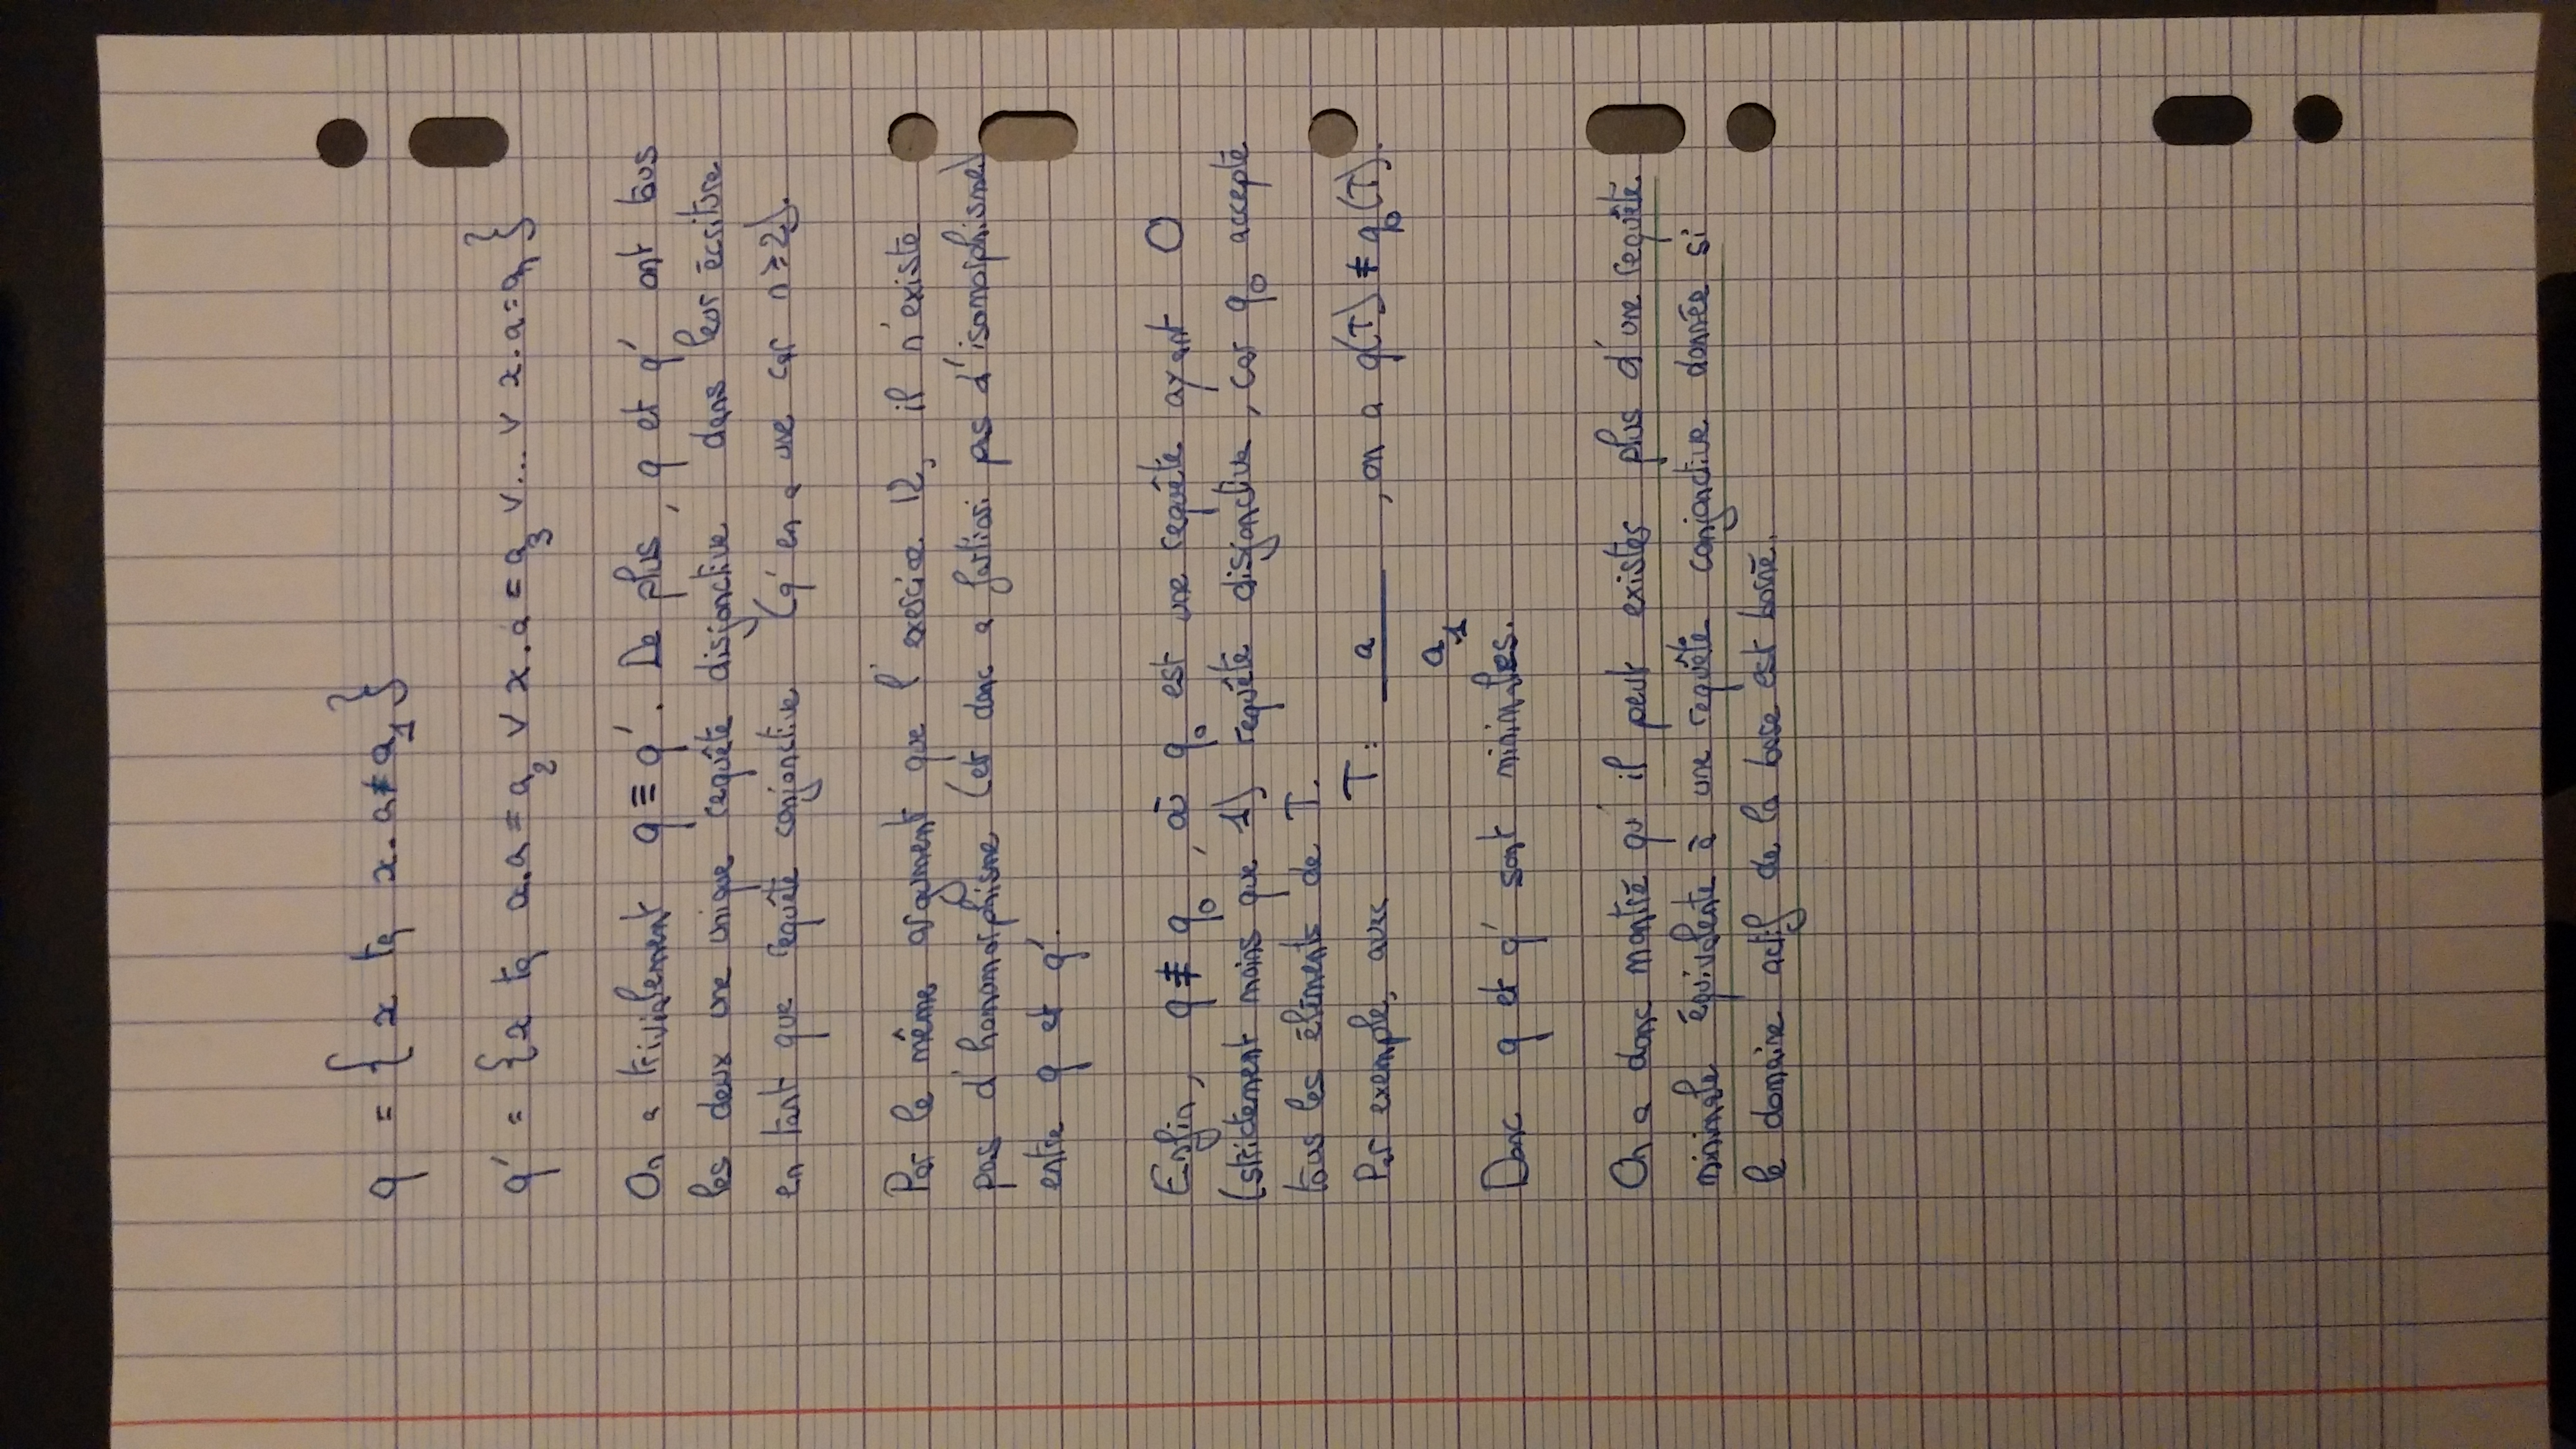 q = { x tq x.a ≠ a₁ }
q' = { x tq x.a = a₂ ∨ x.a = a₃ ∨ ... ∨ x.a = aₙ }
On a trivialement q ≡ q'. De plus, q et q' ont tous
les deux une unique requête disjonctive dans leur écriture
en tant que requête conjonctive (q' en a une car n ≥ 2).
Par le même argument que l'exercice 12, il n'existe
pas d'homomorphisme (et donc a fortiori pas d'isomorphisme)
entre q et q'.
Enfin, q ≢ q₀, où q₀ est une requête ayant 0
(strictement moins que 1) requête disjonctive, car q₀ accepte
tous les éléments de T.
Par exemple, avec T : a , on a q(T) ≠ q₀(T).
a₁
Donc q et q' sont minimales.
On a donc montré qu'il peut exister plus d'une requête
minimale équivalente à une requête conjonctive donnée si
le domaine actif de la base est borné.